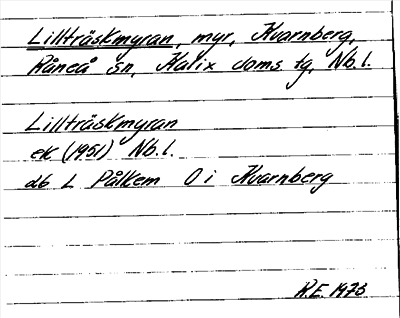 Lillträskmyran, myr, Kvarnberg,
Råneå sn, Kalix doms.tg, Nb.l.
Lillträskmyran
ek (1951) Nb.l.
db L Pålkem O i Kvarnberg
R.E. 1973